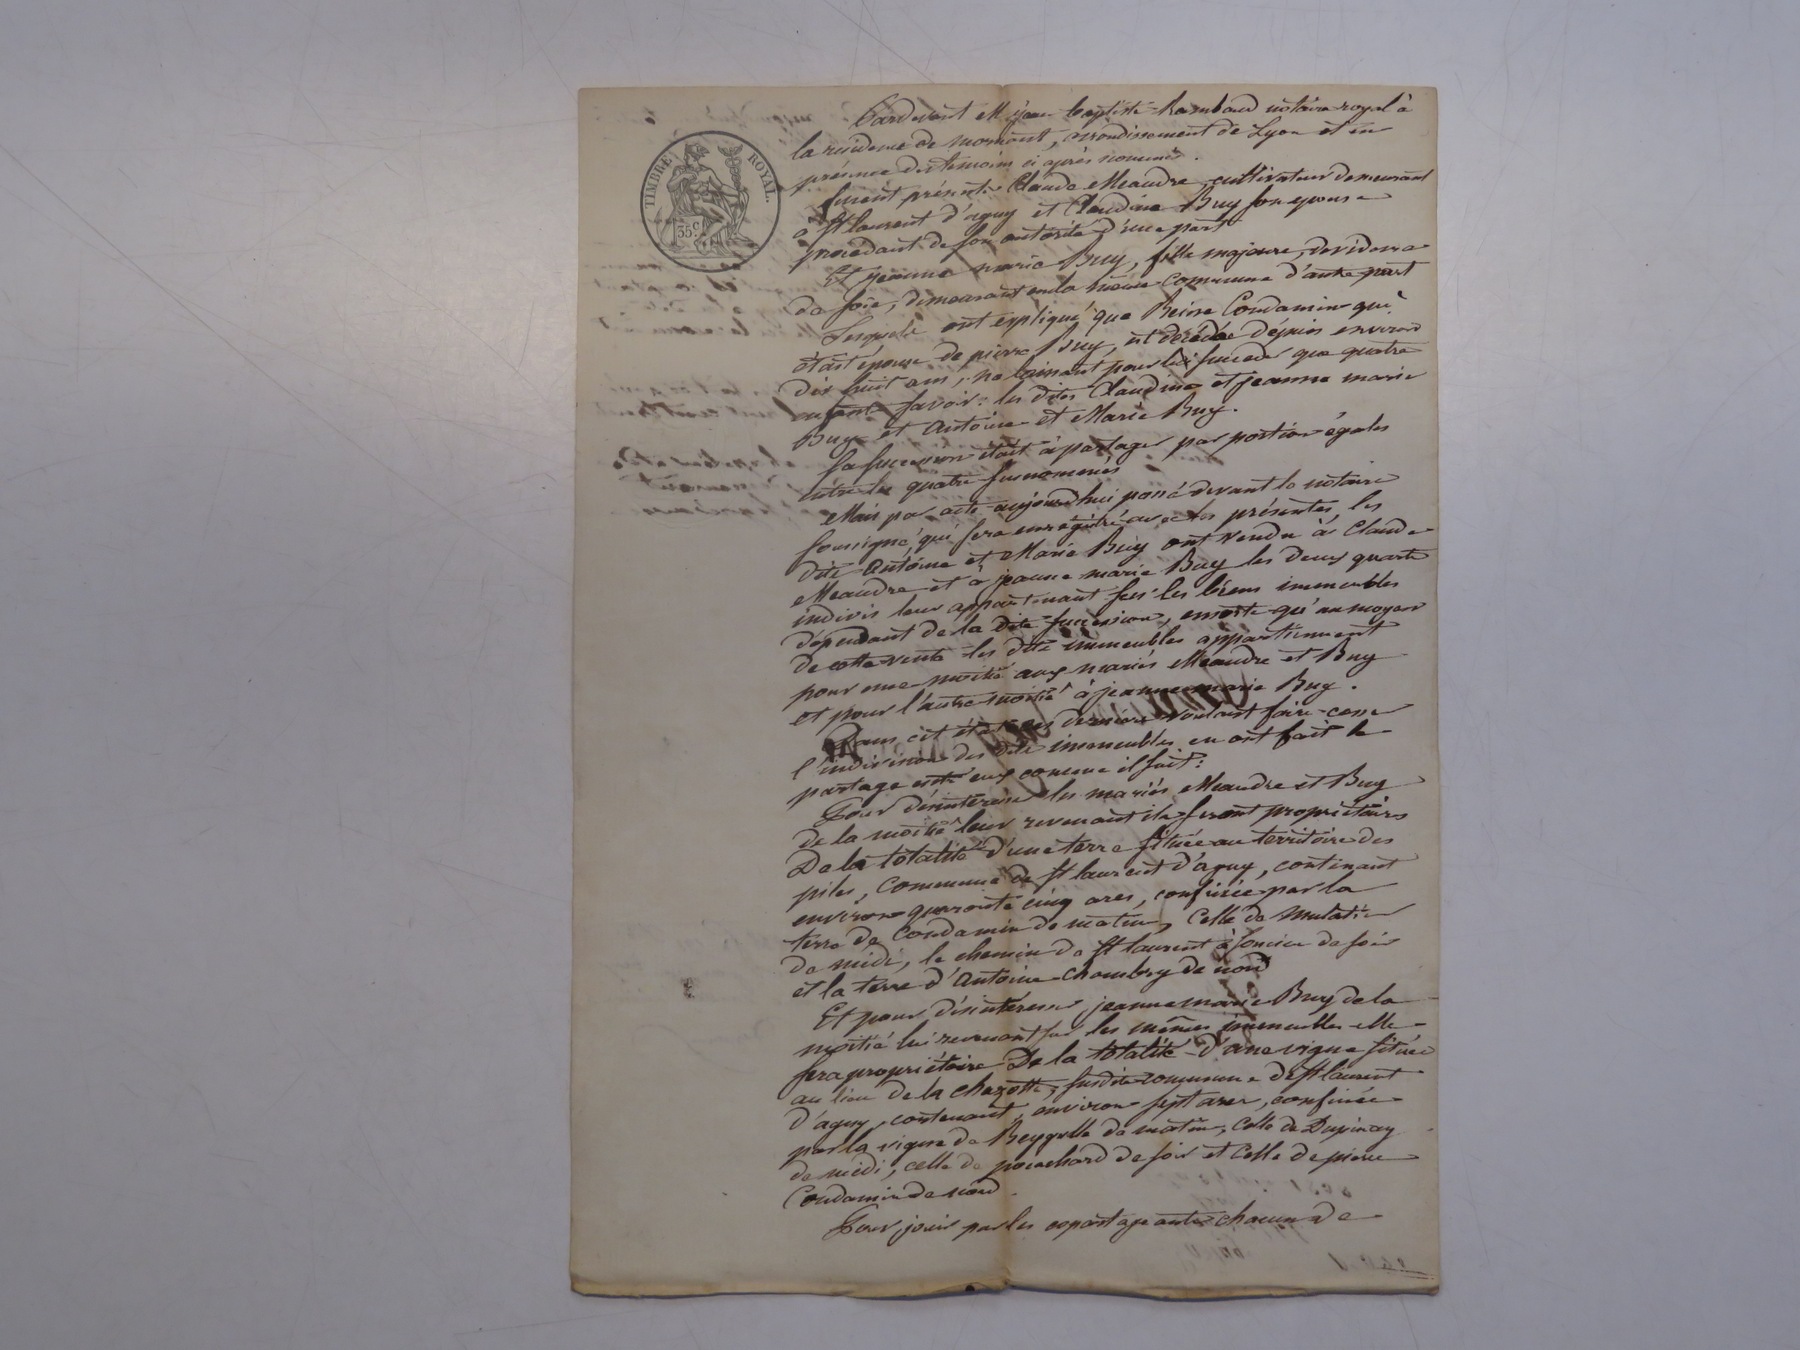 TIMBRE ROYAL.
35 c.
Pardevant Me jean baptiste Rambaud notaire royal à
la residence de mornant, arrondissement de Lyon et en
présence des témoins ci après nommés.
furent présents Claude Meaudre, cultivateur demeurant
à St laurent d'agny et Claudine Buy son epouse
procédant de son autorité d'une part
Et jeanne marie Buy, fille majeure, devideuse
de soie, demeurant en la même commune d'autre part
Lesquels ont expliqué que Reine Condamin qui
était épouse de pierre Buy, est décédée dépuis environ
dix huit ans, ne laissant pour lui succeder que quatre
enfants savoir: les dites Claudine et jeanne marie
Buy et Antoine et Marie Buy.
Sa succession était à partager par portion égales
entre les quatre susnommés
Mais par acte aujourdhui passé devant le notaire
soussigné, qui sera enregistré avec les présentes, les
dits Antoine et Marie Buy ont vendu à Claude
Meaudre et à jeanne marie Buy les deux quarts
indivis leur appartenant sur les biens immeubles
dépendant de la dite succession, ensorte qu'au moyen
de cette vente les dits immeubles appartiennent
pour une moitié aux mariés Meaudre et Buy
et pour l'autre moitié à jeanne marie Buy.
Dans cet état ces derniers voulant faire cesser
l'indivision des dits immeubles en ont fait le
partage entr'eux comme il suit:
Pour désintéresser les mariés Meaudre et Buy
de la moitié leur revenant ils seront propriétaires
De la totalité d'une terre située au territoire des
piles, commune de St laurent d'agny, contenant
environ quarante cinq ares, confinée par la
terre de Condamin de matin, celle de Mulatier
de midi, le chemin de St laurent à soucieu de soir
et la terre d'Antoine Chambry de nord
Et pour désintéresser jeanne marie Buy de la
moitié lui revenant sur les mêmes immeubles elle
sera propriétaire De la totalité d'une vigne située
au lieu de la Chazotte, susdite commune de St laurent
d'agny, contenant environ sept ares, confinée
par la vigne de Reygulle de matin, celle de Dupinay
de midi, celle de ponchard de soir et celle de pierre
Condamin de nord.
Pour jouir par les copartageants chacun de